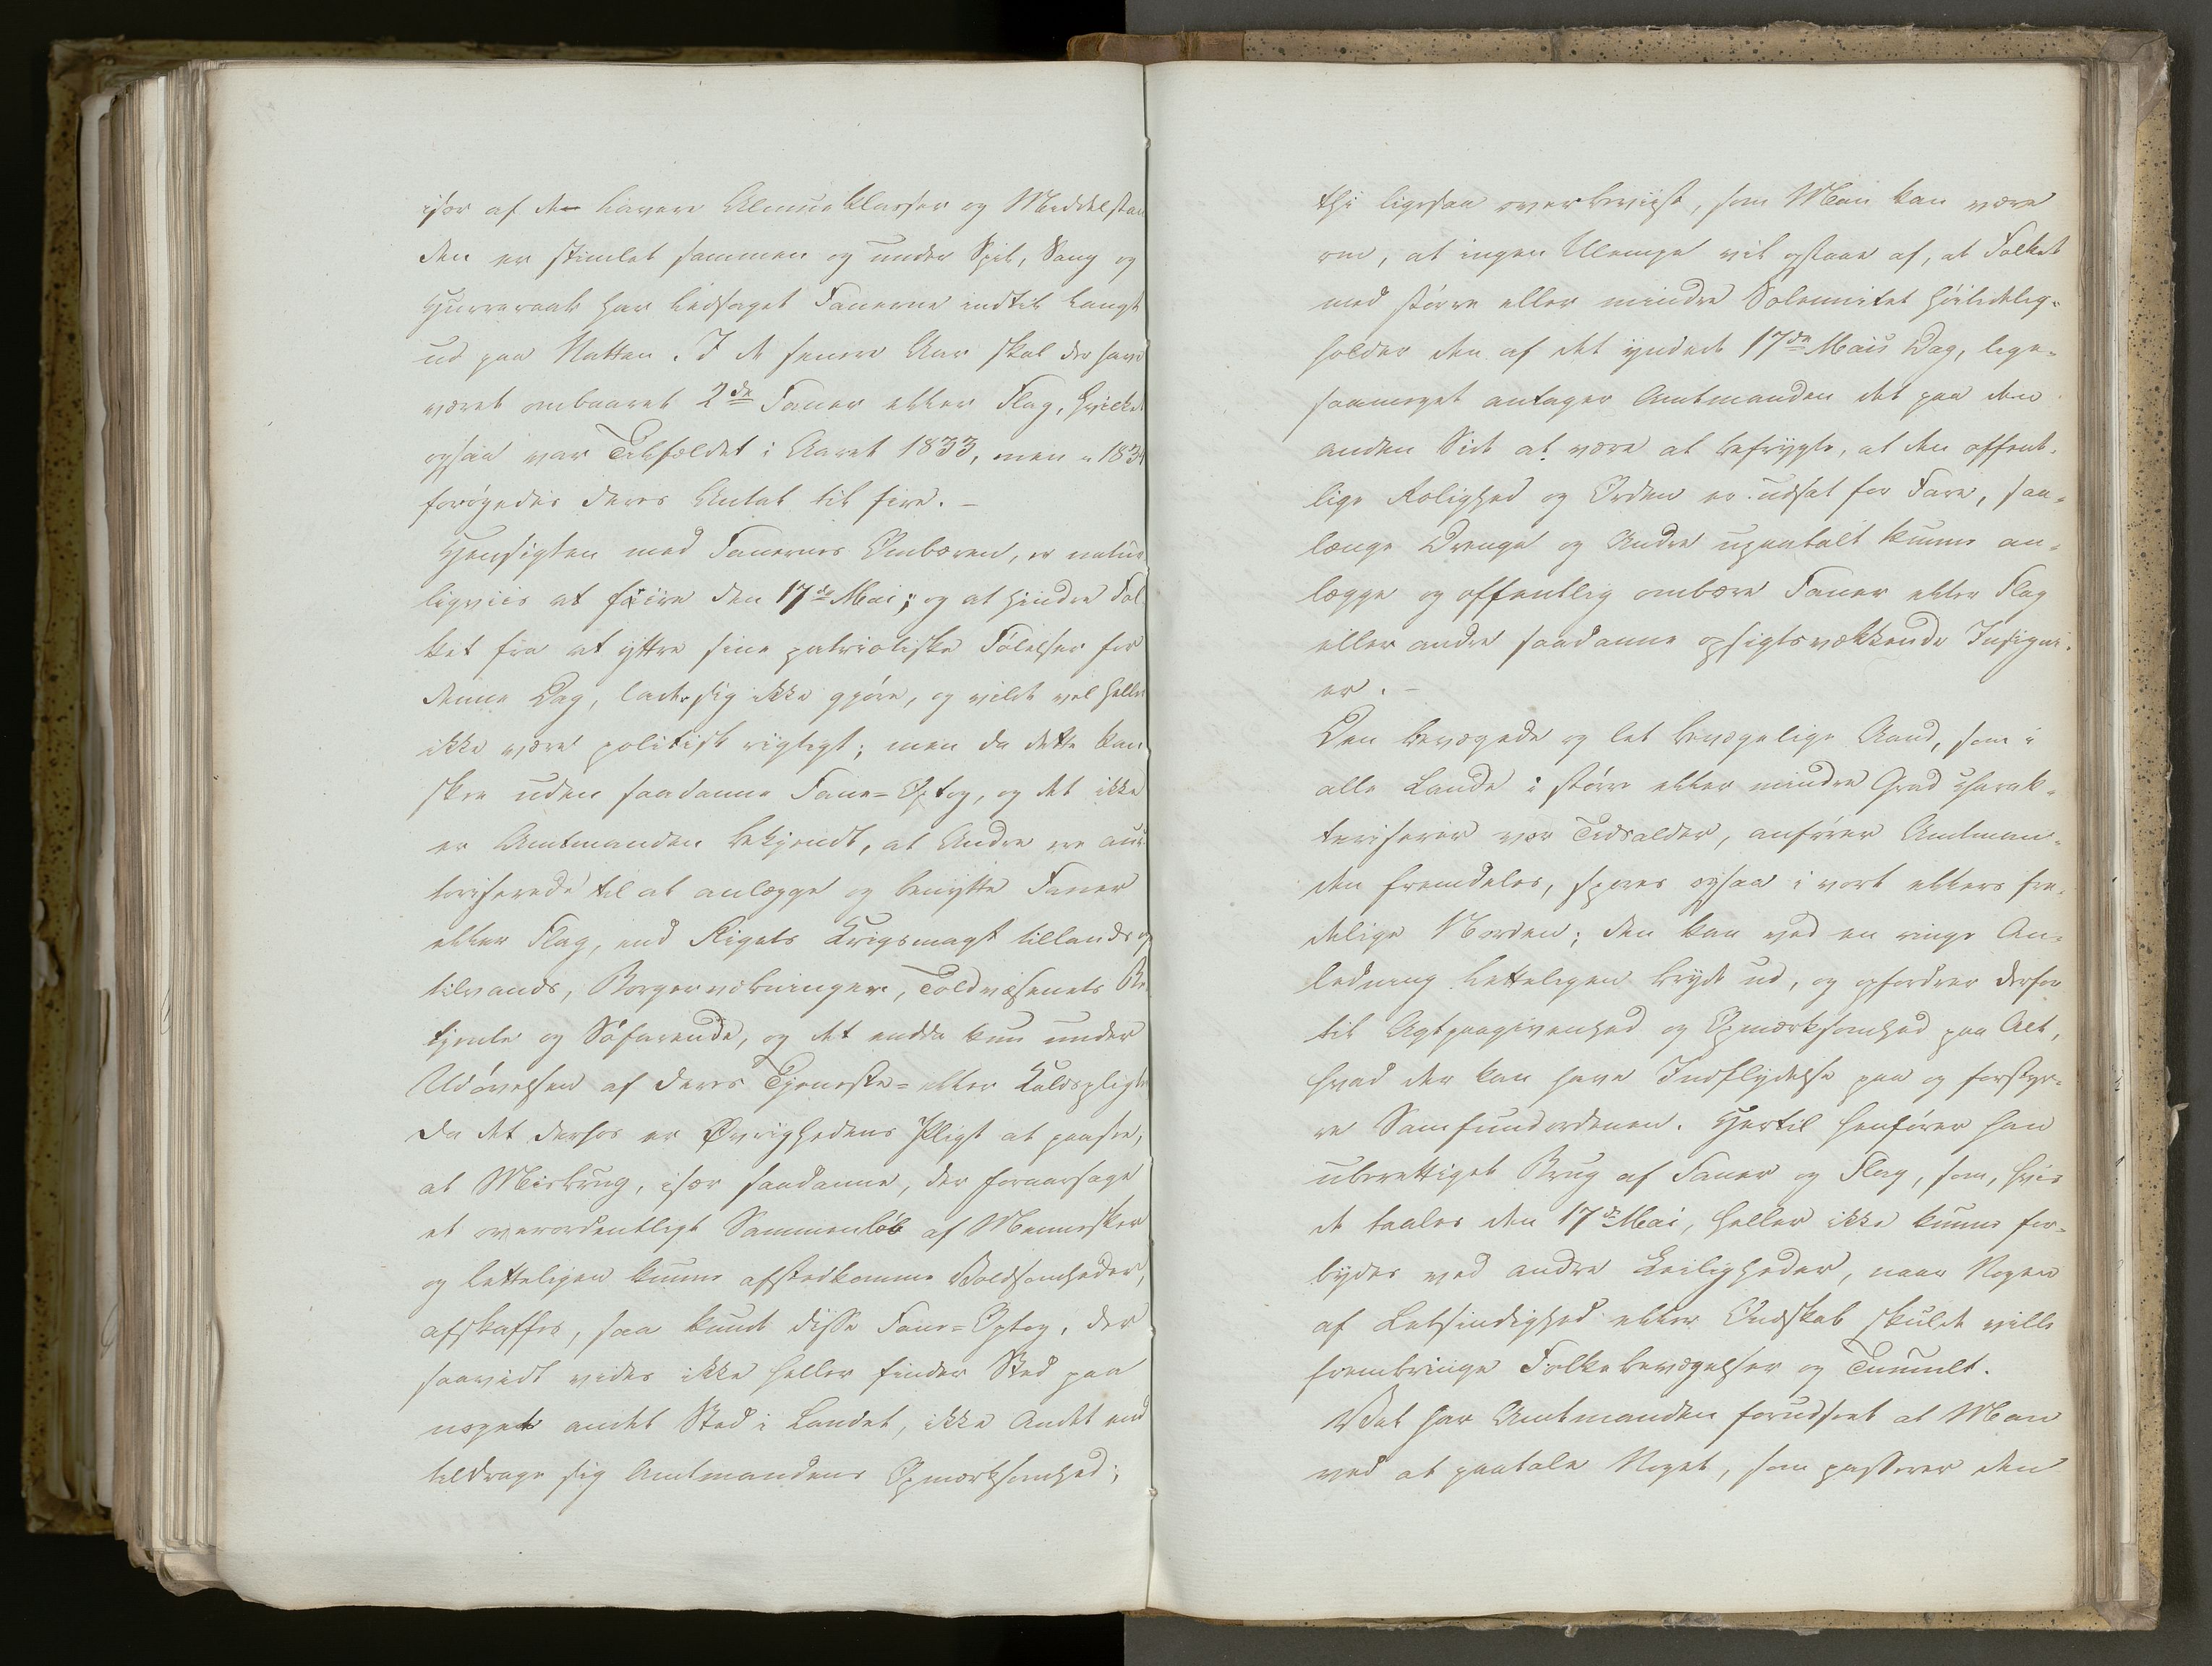 især af de lavere Almueklasser og Middelstan
den er stimlet sammen og under Spil, Sang og
Hurraraab har ledsaget Fanerne indtil langt
ud paa Natten. I de senere Aar skal der have
været ombaaret 2de Faner eller Flag, hvilket
ogsaa var Tilfældet i Aaret 1833, men i 1834
forøgedes deres Antal til fire. –
Hensigten med Fanernes Ombæren, er natur
ligviis at feire den 17de Mai; og at hindre Fol
ket fra at yttre sine patriotiske Følelser for
denne Dag, lader sig ikke gjøre, og vilde vel heller
ikke være politisk rigtigt; men da dette kan
skee uden saadanne Fane=Optog, og det ikke
er Amtmanden bekjendt, at Andre ere auc
toriserede til at anlægge og benytte Faner
eller Flag, end Rigets Krigsmagt tillands og
tilvands, Borgervæbninger, Toldvæsenets Be
tjente og Søfarende, og det endda kun under
Udøvelsen af deres Tjeneste= eller Kaldspligt
da det derhos er Øvrighedens Pligt at paasee,
at Misbrug, især saadanne, der foraarsage
et overordentligt Sammenløb af Mennesker
og letteligen kunne afstedkomme Voldsomheder,
afskaffes, saa kunde disse Fane=Optog, der
saavidt vides ikke heller finder Sted paa
noget andet Sted i Landet, ikke Andet end
tildrage sig Amtmandens Opmærksomhed;
thi ligesaa overbeviist, som Man kan være
om, at ingen Ulempe vil opstaae af, at Folket
med større eller mindre Solennitet høitidelig=
holder den af det yndede 17de Mais Dag, lige=
saameget antager Amtmanden det paa den
anden Side at være at befrygte, at den offent=
lige Rolighed og Orden er udsat for Fare, saa=
længe Drenge og Andre upaatalt kunne an=
lægge og offentlig ombære Faner eller Flag
eller andre saadanne opsigtsvækkende Insigni=
er. –
Den bevægede og let bevægelige Aand, som i
alle Lande i større eller mindre Grad charak=
teriserer vor Tidsalder, anfører Amtman=
den fremdeles, spores ogsaa i vort ellers fre=
delige Norden; den kan ved en ringe An=
ledning letteligen bryde ud, og opfordrer derfor
til Agtpaagivenhed og Opmærksomhed paa Alt,
hvad der kan have Indflydelse paa og forstyr=
re Samfundsordenen. Hertil henfører han
uberettiget Brug af Faner og Flag, som, hvis
de taales den 17de Mai, heller ikke kunne for=
bydes ved andre Leiligheder, naar Nogen
af Letsindighed eller Ondskab skulde ville
frembringe Folkebevægelser og Tumult.
Vel har Amtmanden forudseet at Man
ved at paatale Noget, som passerer den